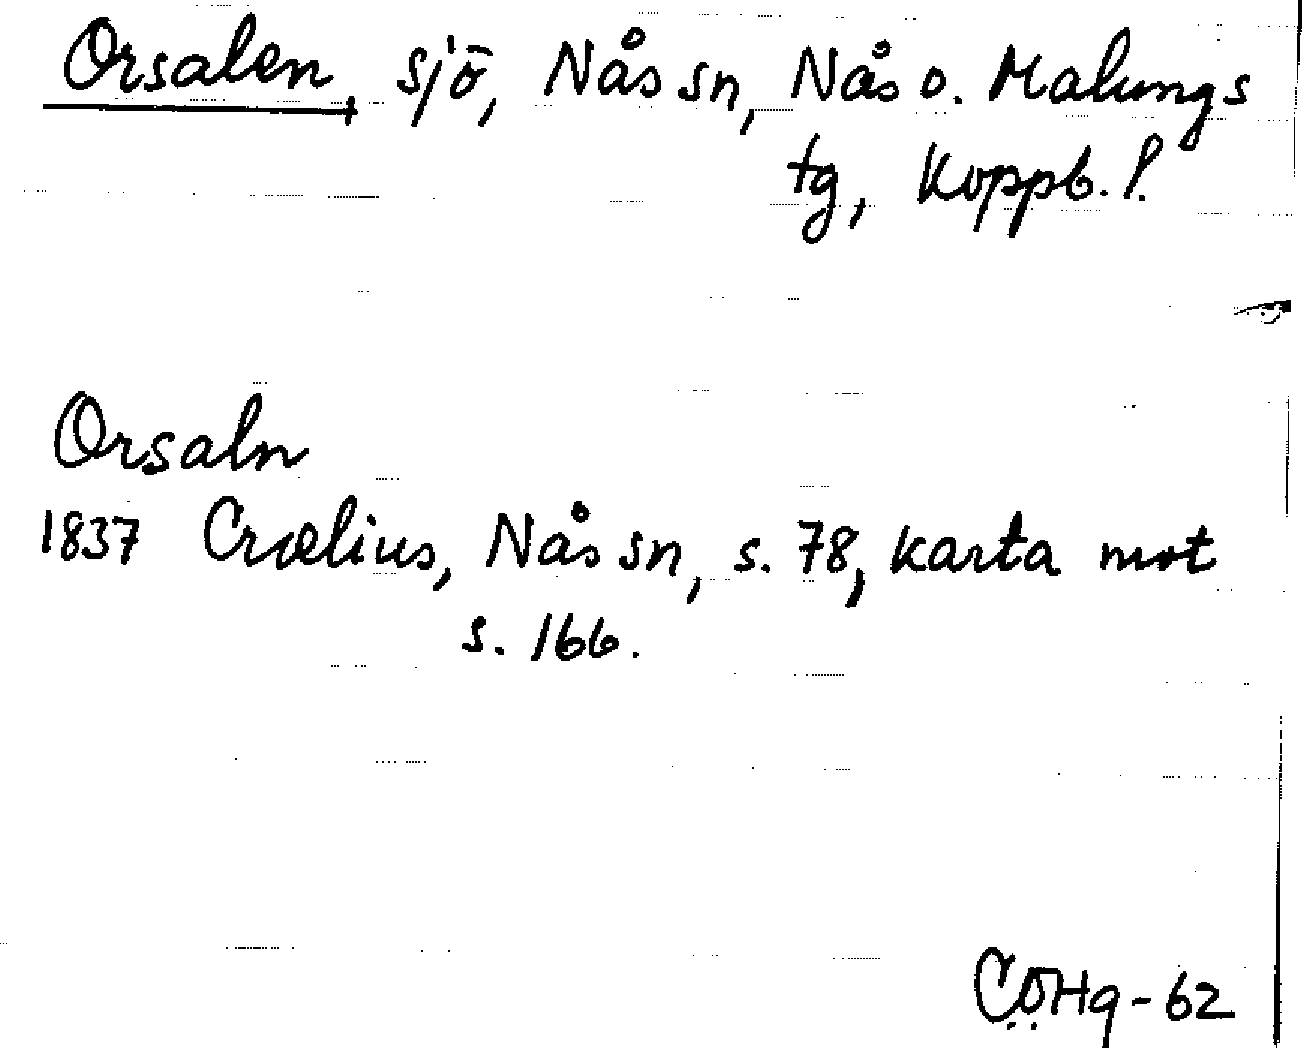 Orsalen, sjö, Nås sn, Nås o. Malungs
tg, Koppb. l.
Orsaln
1837 Crælius, Nås sn, s. 78, karta mot
s. 166.
CÖHg-62